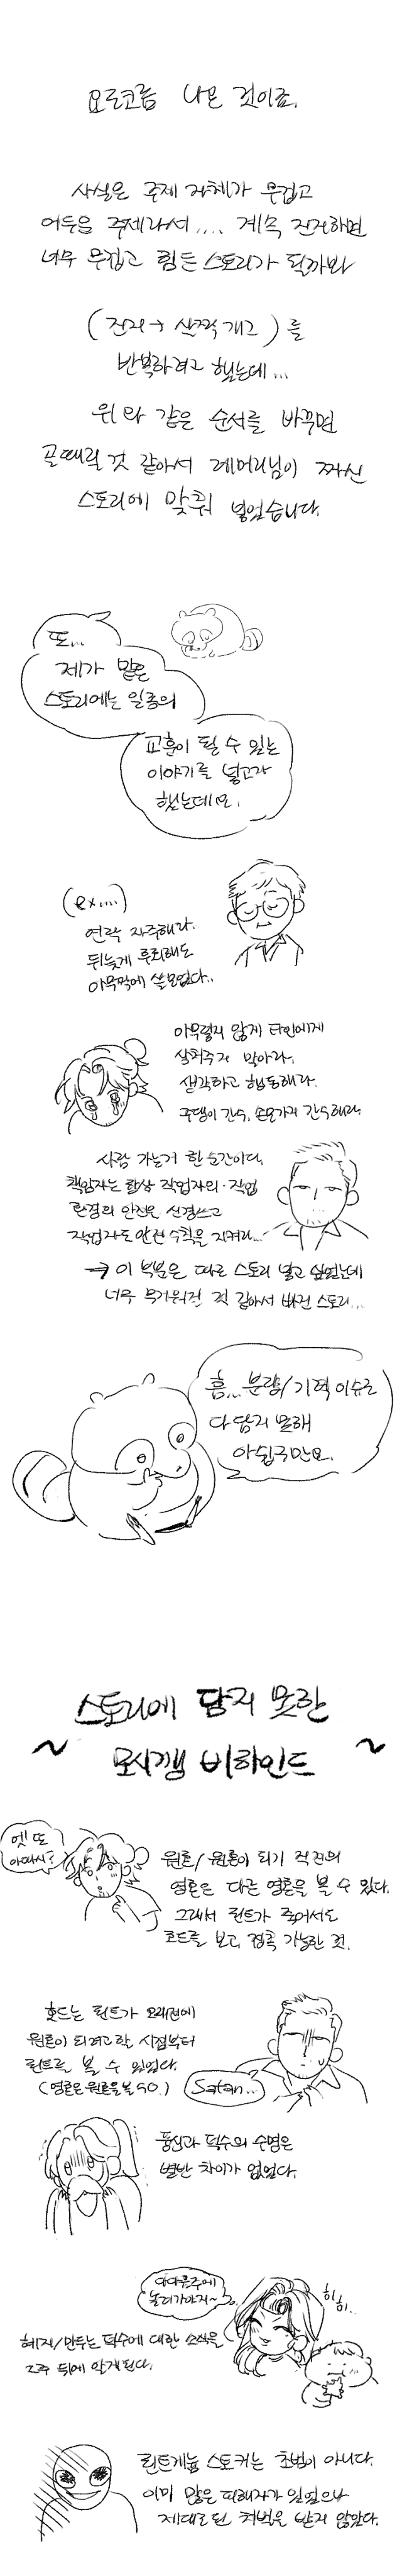 요로코롬 나온 것이죠.
사실은 주제 자체가 무겁고
어두운 주제라서.... 계속 진지하면
너무 무겁고 힘든 스토리가 될까봐
(진지→살짝 개그)를
반복하려고 했는데...
위와 같은 순서를 바꾸면
골때릴 것 같아서 레머리님이 짜신
스토리에 맞춰 넣었습니다.
또...
제가 맡은
스토리에는 일종의
교훈이 될 수 있는
이야기를 넣고자
했는데요.
(ex....)
연락 자주해라.
뒤늦게 후회해도
아무짝에 쓸모없다..
아무렇지 않게 타인에게
상처주지 말아라.
생각하고 행동해라.
주댕이 간수, 손모가지 간수해라.
사람 가는거 한순간이다.
책임자는 항상 작업자의 작업
환경의 안전을 신경쓰고
작업자도 안전수칙을 지켜라...
→ 이 부분은 따로 스토리 넣고 싶었는데
너무 무거워질 것 같아서 빠진 스토리...
흠... 분량/기력 이슈로
다 담지 못해
아쉽군만요.
스토리에 담지 못한
~ 모시깽 비하인드 ~
엣또
아따시?
원혼/원혼이 되기 직전의
영혼은 다른 영혼을 볼 수 있다.
그래서 린트가 죽어서도
호드를 보고, 접촉 가능한 것.
호드는 린트가 오래전에
원혼이 되려고 한 시점부터
린트를 볼 수 있었다.
(영혼은 원혼을 볼 수 O.)
Satan...
풍신과 덕수의 수명은
별반 차이가 없었다.
다다음주에
놀러가야지~
히히..
혜지/만두는 덕수에 대한 소식을
2주 뒤에 알게된다.
린트게늄 스토커는 초범이 아니다.
이미 많은 피해자가 있었으나
제대로 된 처벌은 받지 않았다.